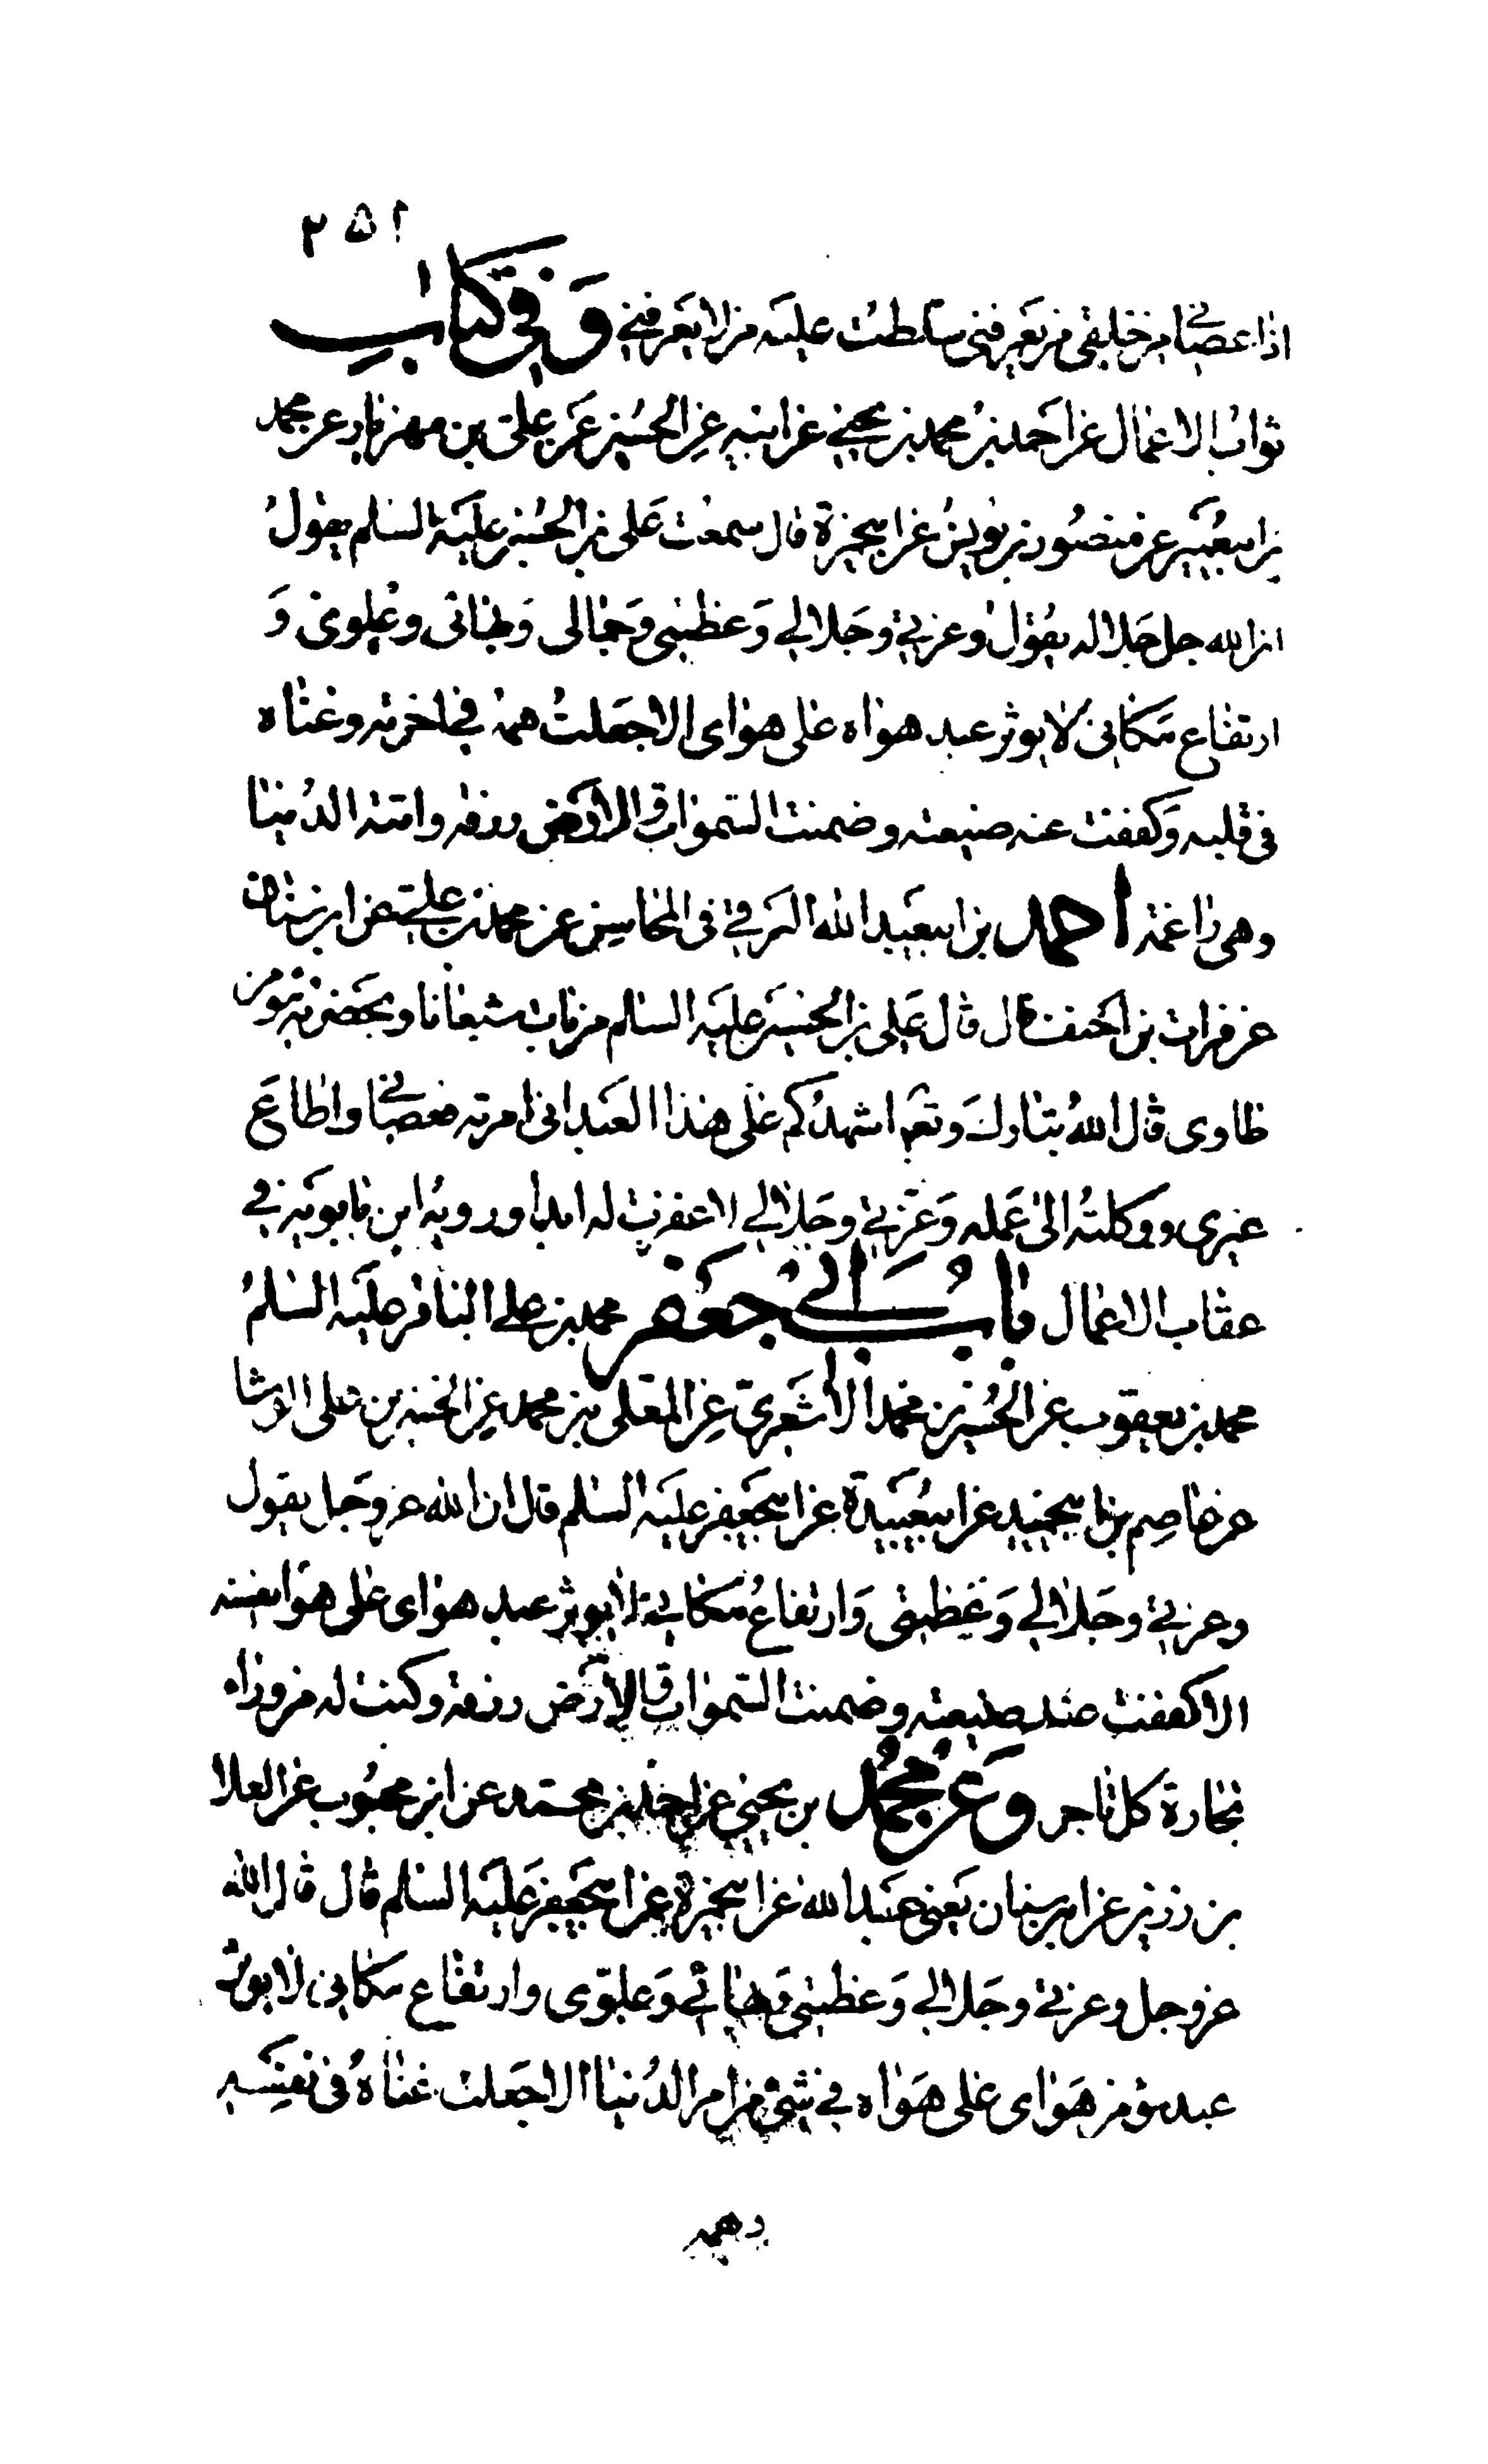 ٢٥١
اذا عصاني من خلقي من يعرفني سلطت عليه من لا يعرفني وفي كتاب
ثواب الاعمال عن احمد بن محمد بن يحيى عن ابيه عن الحسين عن علي بن مهزيار عن محمد
بن ابي عمير عن منصور بن يونس عن ابي حمزة قال سمعت علي بن الحسين عليه السلم يقول
ان الله جل جلاله يقول وعزتي وجلالي وعظمتي وجمالي وبهائي وعلوي و
ارتفاع مكاني لا يوثر عبد هواه على هواي الا جعلت همه في اخرته وغناه
في قلبه وكففت عنه ضيعته وضمنت السموات والارض رزقه واتته الدنيا
وهي راغمة احمد بن ابي عبد الله البرقي في المحاسن عن محمد بن علي عن ابن سنان
عن فرات بن احنف قال قال علي بن الحسين عليه السلام من بات شبعانا وبحضرته مؤمن
طاوي قال الله تبارك وتعم اشهدكم على هذا العبد اني امرته فعصاني واطاع
غيري ووكلته الى عمله وعزتي وجلالي لا غفرت له ابدا ورويه ابن بابويه في
عقاب الاعمال باب ابي جعفر محمد بن علي الباقر عليه السلم
محمد بن يعقوب عن الحسين بن محمد الاشعري عن المعلى بن محمد عن الحسن بن علي الوشا
عن عاصم بن حميد عن ابي عبيدة عن ابي جعفر عليه السلم قال ان الله عز وجل يقول
وعزتي وجلالي وعظمتي وارتفاع مكاني لا يوثر عبد هواي على هوا نفسه
الا كففت عليه ضيعته وضمنت السموات والارض رزقه وكنت له من وراء
تجارة كل تاجر وعن محمد بن يحيى عن احمد بن محمد عن ابن محبوب عن العلا
بن رزين عن ابن سنان يعني عبد الله عن ابي حمزة عن ابي جعفر عليه السلم قال قال الله
عز وجل وعزتي وجلالي وعظمتي وبهائي وعلوي وارتفاع مكاني لا يوثر
عبد مؤمن هواي على هواه في شيء من امر الدنيا الا جعلت غناه في نفسه
وهمه